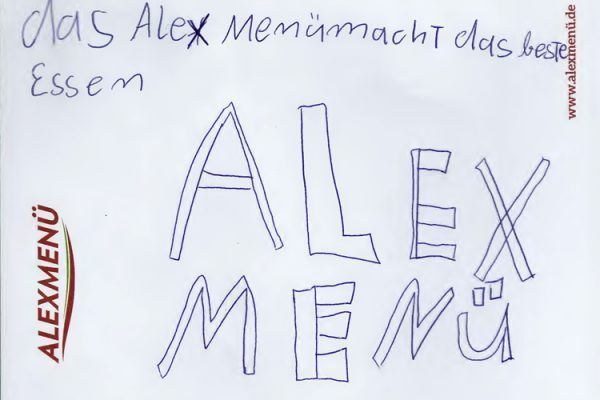 das Alex Menümacht das beste
Essen
ALEX
MENÜ
ALEXMENÜ
www.alexmenü.de